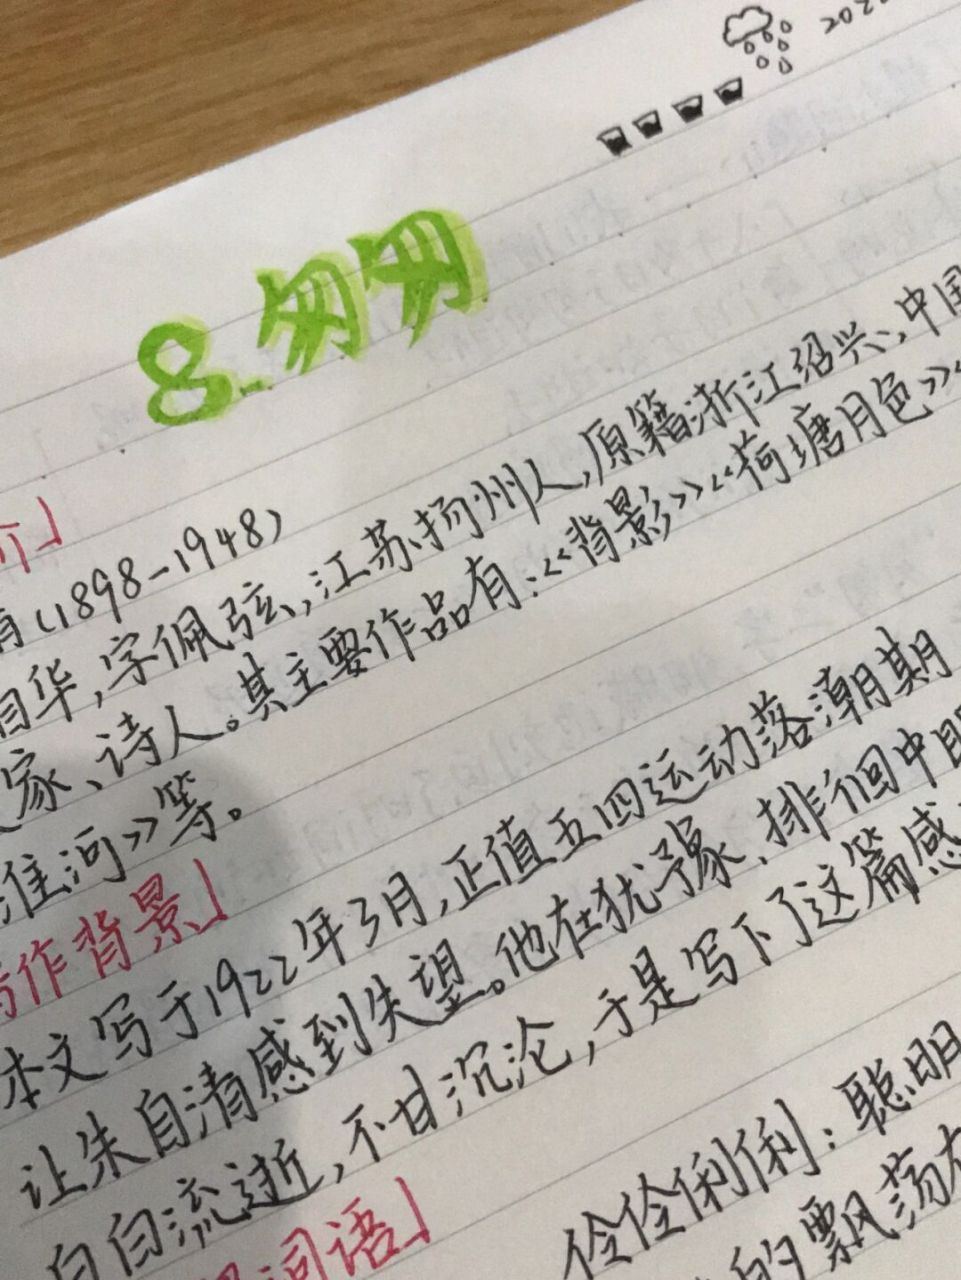 202
8.匆匆
介」
(1898-1948)
自华,字佩弦,江苏扬州人,原籍浙江绍兴、中国
家、诗人。其主要作品有:《背影》《荷塘月色》《
淮河》等。
写作背景」
本文写于1922年3月,正值五四运动落潮期
让朱自清感到失望。他在犹豫、排徊中
白白流逝,不甘沉沦,于是写下了这篇感
词语」
伶伶俐俐:聪明
的 飘荡在